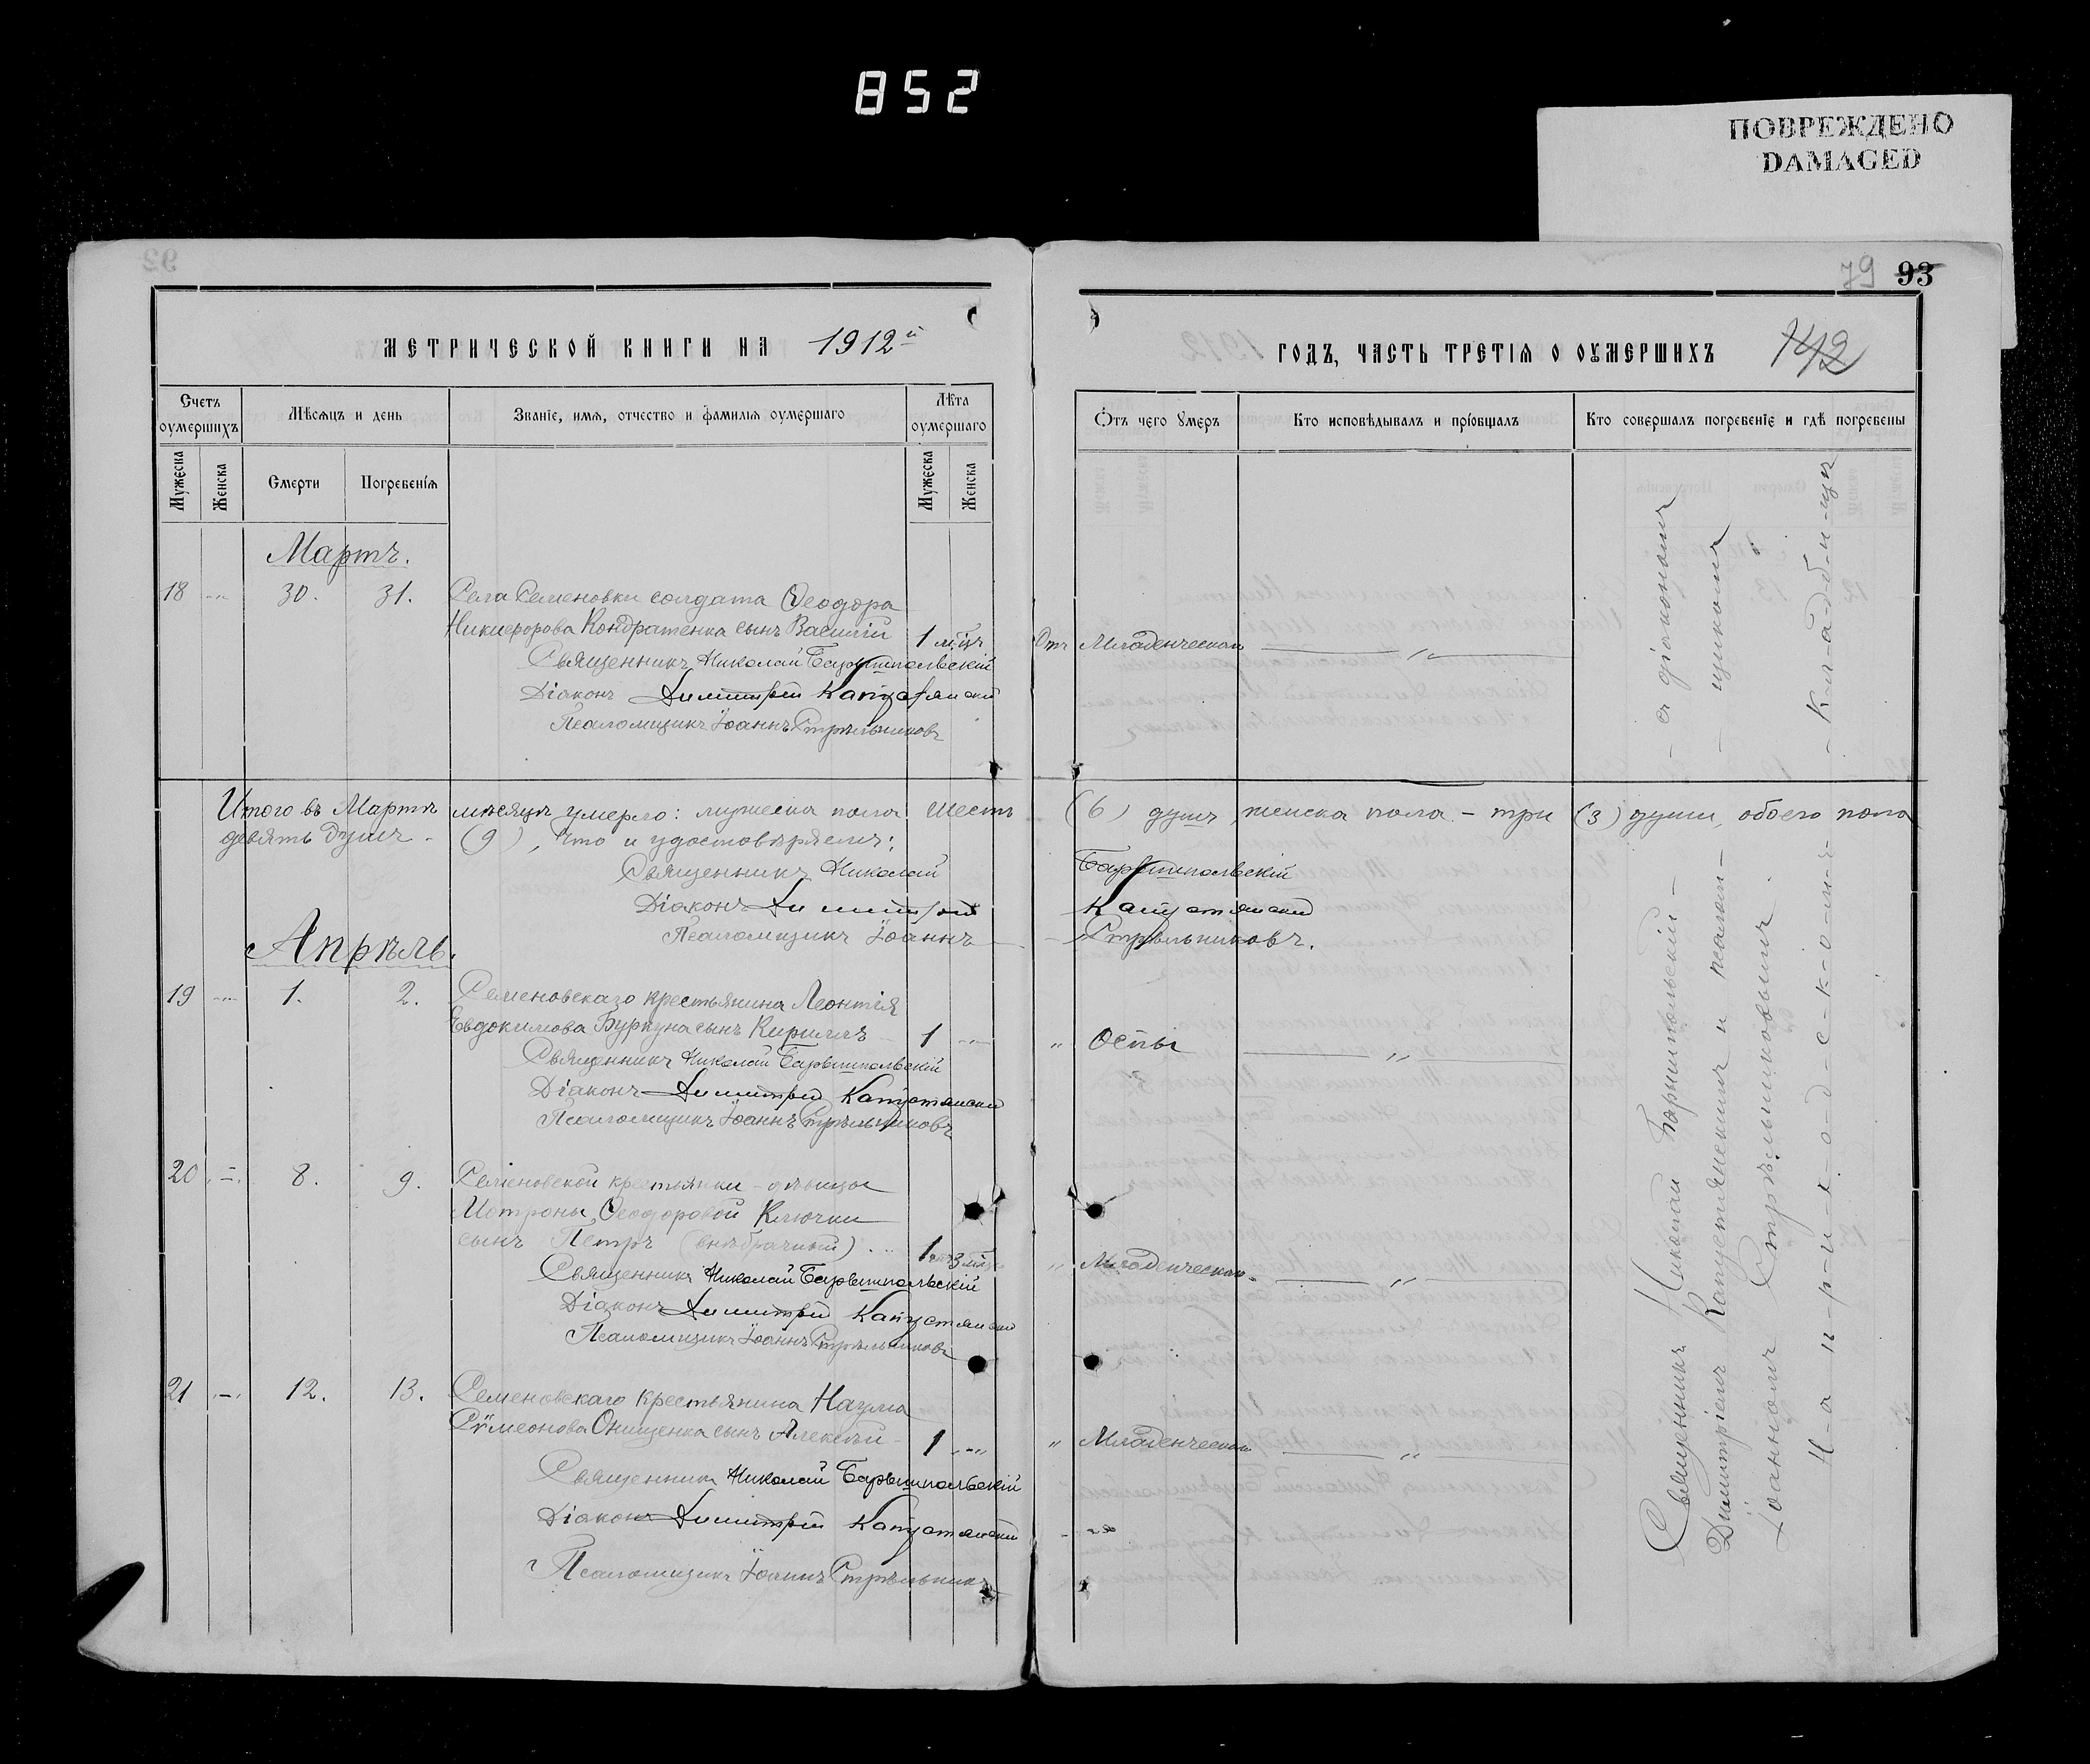 852
ПОВРЕЖДЕНО
DAMAGED
79 93
МЕТРИЧЕСКОЙ КНИГИ НА 1912й
ГОДЪ, ЧАСТЬ ТРЕТІЯ О ОУМЕРШИХЪ 142
Счетъ оумершихъ
Мѣсяцъ и день
Званіе, имя, отчество и фамилія оумершаго
Лѣта оумершаго
Отъ чего умеръ
Кто исповѣдывалъ и пріобщалъ
Кто совершалъ погребеніе и гдѣ погребены
Мужеска
Женска
Смерти
Погребенія
Мужеска
Женска
Мартъ.
18 30. 31. Села Семеновки солдата Ѳеодора
Никифорова Кондратенка сынъ Василій 1 мѣц. Отъ Младенческой
Священникъ Николай Барвшпольскій
Діаконъ Димитрій Капустянскій
Псаломщикъ Іоаннъ Стрѣльниковъ
Итого въ Мартѣ мѣсяцѣ умерло: мужеска пола шесть (6) душъ, женска пола – три (3) души, обоего пола
девять душъ – (9), что и удостовѣряемъ:
Священникъ Николай Барвшпольскій
Діаконъ Димитрій Капустянскій
Псаломщикъ Іоаннъ Стрѣльниковъ.
Апрѣль.
19 1. 2. Семеновскаго крестьянина Леонтія
Евдокимова Буркуна сынъ Кириллъ 1 " Оспы
Священникъ Николай Барвшпольскій
Діаконъ Димитрій Капустянскій
Псаломщикъ Іоаннъ Стрѣльниковъ
20 8. 9. Семеновской крестьянки – дѣвицы
Мотроны Ѳеодоровой Клочки
сынъ Петръ (внѣбрачный) 1 " Младенческой
Священникъ Николай Барвшпольскій
Діаконъ Димитрій Капустянскій
Псаломщикъ Іоаннъ Стрѣльниковъ
21 12. 13. Семеновскаго крестьянина Наума
Сѵмеонова Онищенка сынъ Алексѣй 1 " Младенческой
Священникъ Николай Барвшпольскій
Діаконъ Димитрій Капустянскій
Псаломщикъ Іоаннъ Стрѣльниковъ
Священникъ Николай Барвшпольскій – съ діакономъ
Димитріемъ Капустянскимъ и псалом – щикомъ
Іоанномъ Стрѣльниковымъ.
Н-а п-р-и-х-о-д-с-к-о-м-ъ – К-л-а-д-б-и-щѣ